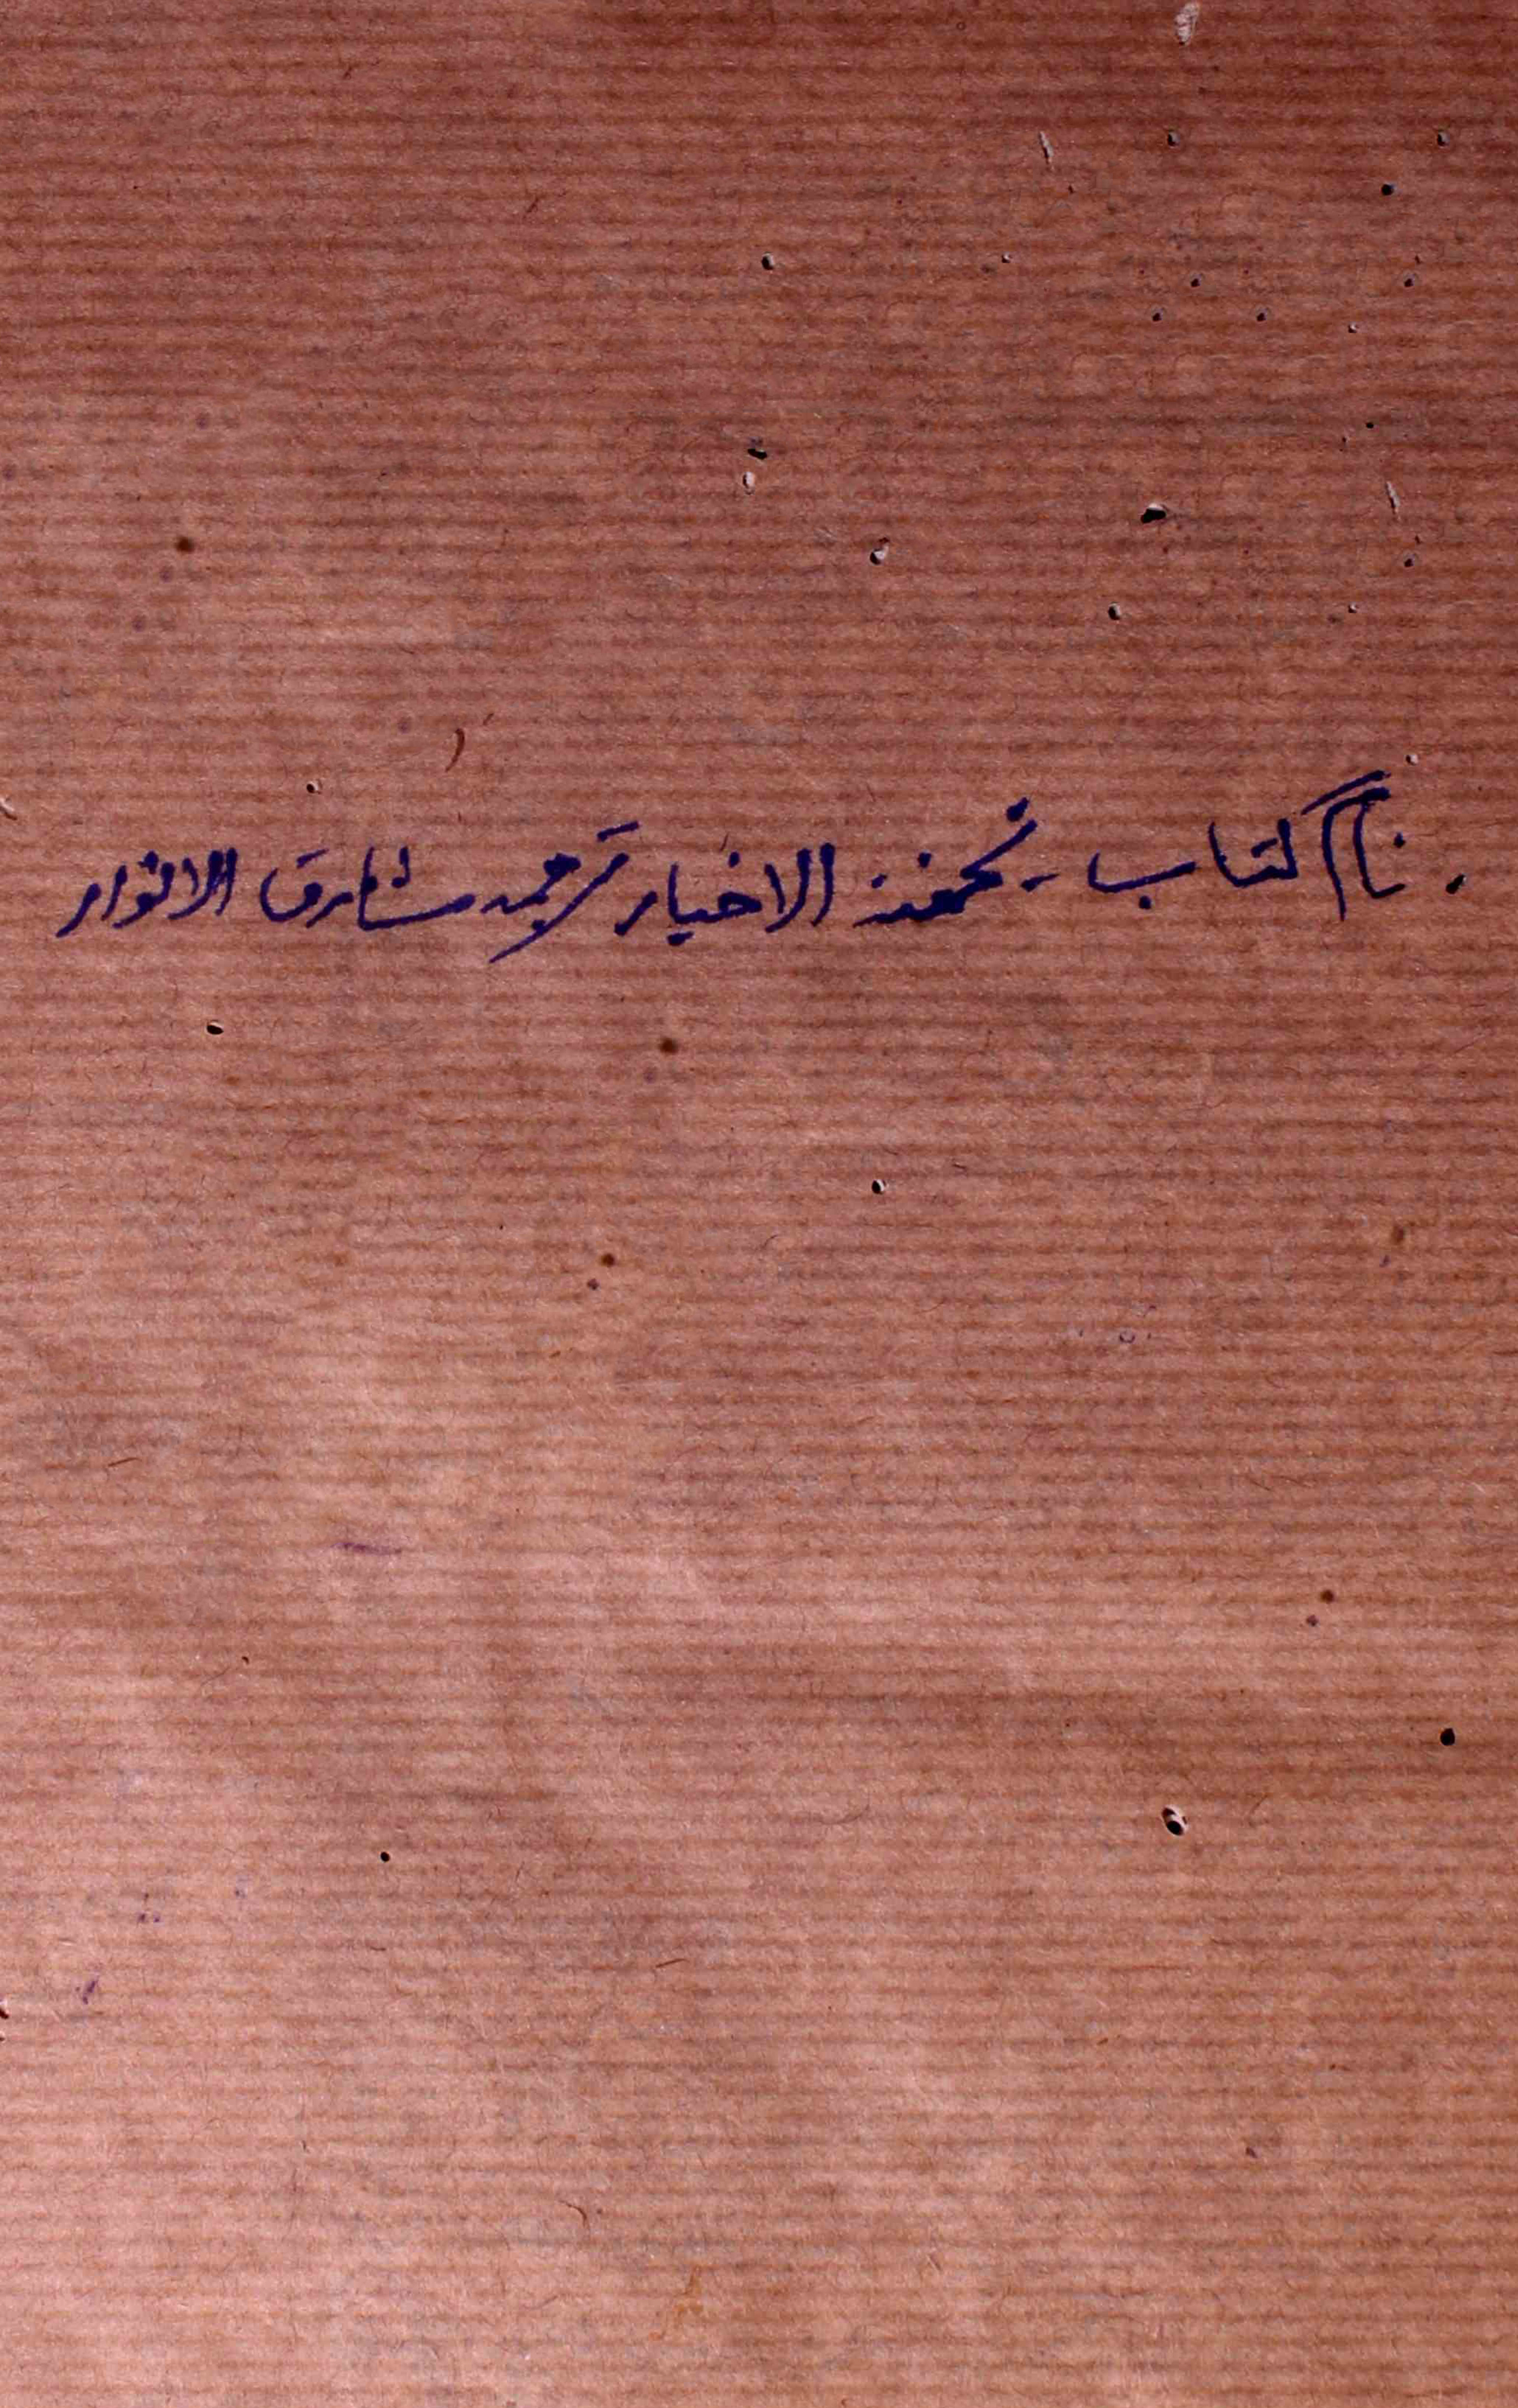 نام کتاب - تحفۃ الاخیار ترجمہ مشارق الانوار